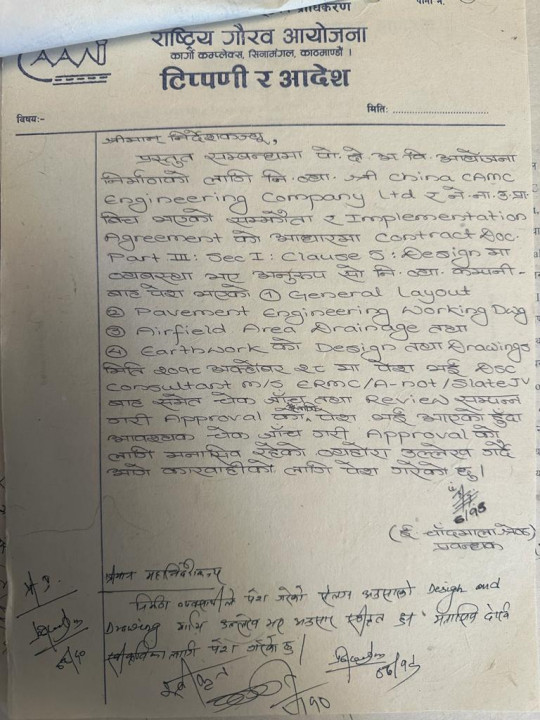 प्राधिकरण
CAAN
राष्ट्रिय गौरव आयोजना
कार्गो कम्प्लेक्स, सिनामंगल, काठमाण्डौ ।
टिप्पणी र आदेश
विषय:-
मिति: ........................
श्रीमान् निर्देशकज्यू,
प्रस्तुत सम्बन्धमा पो. क्षे. अ. वि. आयोजना
निर्माणको लागि नि. व्य. श्री China CAMC
Engineering Company Ltd र ने. ना. उ. प्रा.
बिच भएको सम्झौता र Implementation
Agreement को आधारमा Contract Doc.
Part III: Sec I: Clause 5: Design मा
व्यवस्था भए अनुरुप सो नि. व्य. कम्पनी-
बाट पेश भएको ① General Layout
② Pavement Engineering Working Dwg
③ Airfield Area Drainage तथा
④ Earthwork को Design तथा Drawings
मिति २०१८ अक्टोबर २८ मा पेश भई DSC
Consultant M/S ERMC/A-not/Slate JV
बाट समेत चेक जाँच तथा Review सम्पन्न
गरी Approval को लागि पेश भई आएको हुँदा
आवश्यक चेक जाँच गरी Approval को
लागि मनासिव रहेको व्यहोरा उल्लेख गर्दै
अगि कारवाहीको लागि पेश गरेको छु ।
प्रबन्धक
श्रीमान महानिर्देशकज्यू
निर्माण व्यवसायीले पेश गरेको संलग्न अनुसारको Design and
Drawing माथि उल्लेख भए अनुसार स्वीकृत हुन मनासिव देखि
स्वीकृतिका लागि पेश गरेको छु ।